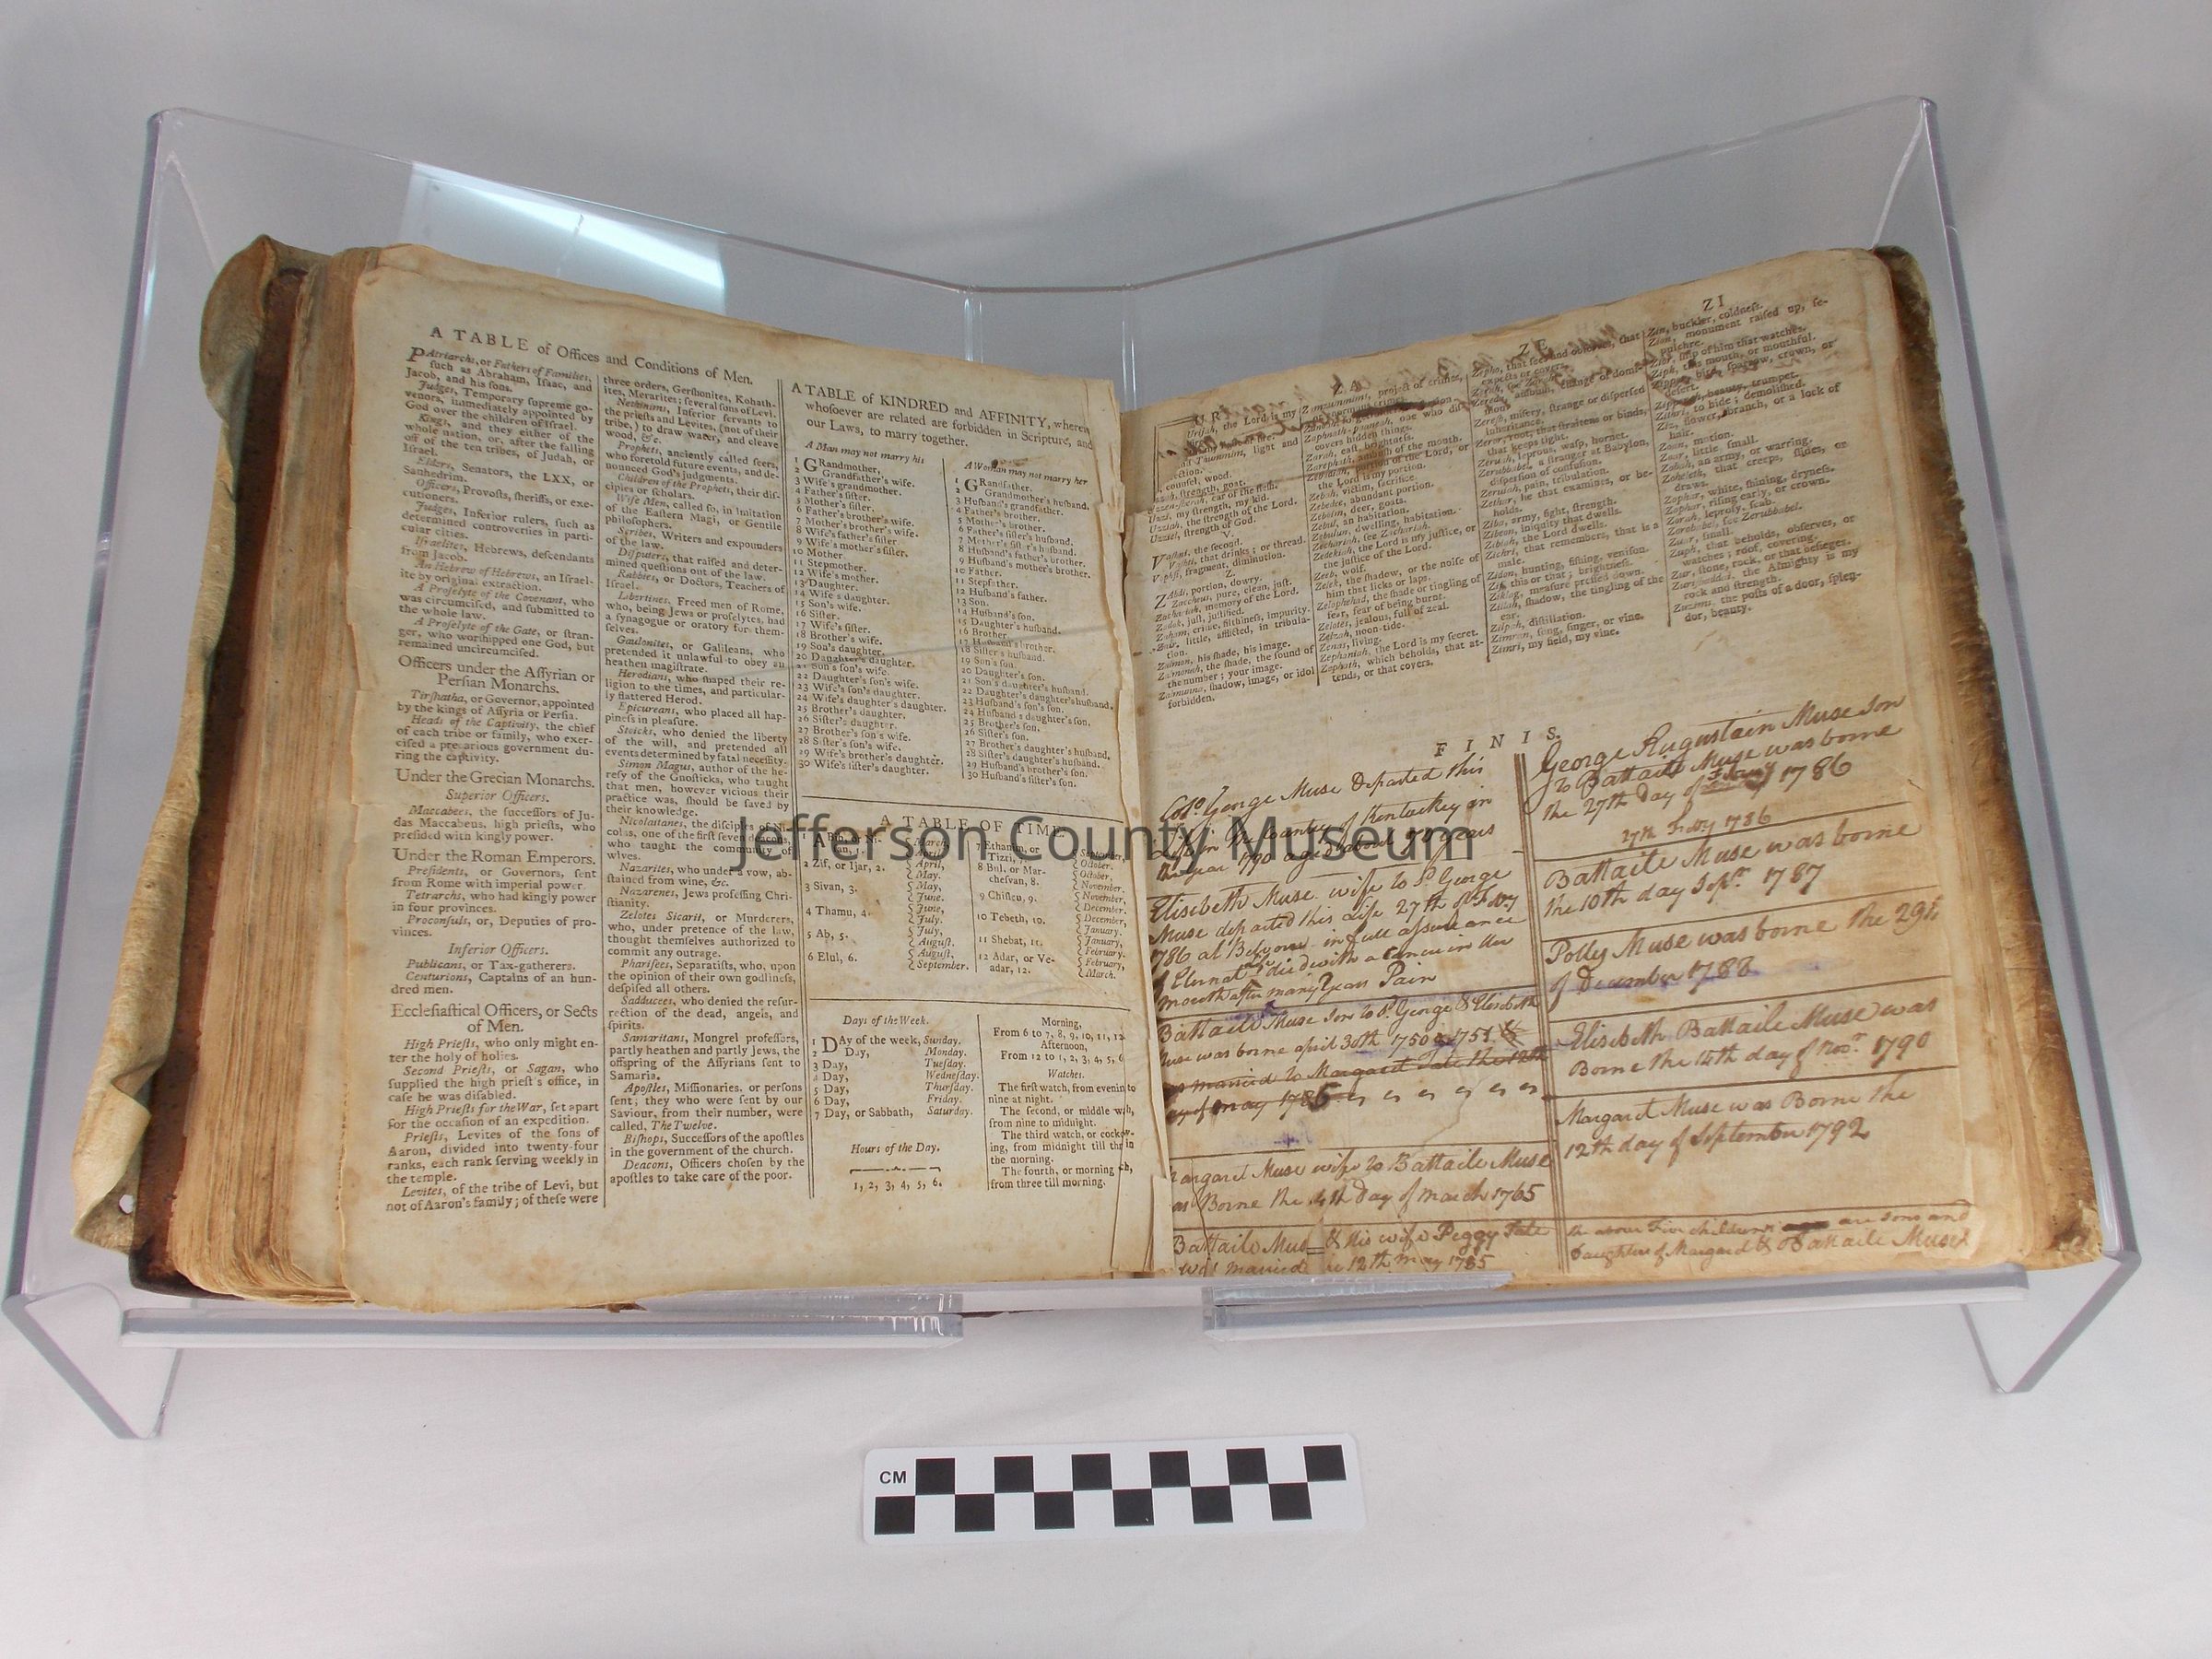 A TABLE of Offices and Conditions of Men.
PAtriarchs, or Fathers of Families,
such as Abraham, Isaac, and
Jacob, and his sons.
Judges, Temporary supreme go-
vernors, immediately appointed by
God over the children of Israel.
Kings, and they either of the
whole nation, or, after the falling
off of the ten tribes, of Judah, or
Israel.
Elders, Senators, the LXX, or
Sanhedrim.
Officers, Provosts, sheriffs, or exe-
cutioners.
Judges, Inferior rulers, such as
determined controversies in parti-
cular cities.
Israelites, Hebrews, descendants
from Jacob.
An Hebrew of Hebrews, an Israel-
ite by original extraction.
A Proselyte of the Covenant, who
was circumcised, and submitted to
the whole law.
A Proselyte of the Gate, or stran-
ger, who worshipped one God, but
remained uncircumcised.
Officers under the Assyrian or
Persian Monarchs.
Tirshatha, or Governor, appointed
by the kings of Assyria or Persia.
Heads of the Captivity, the chief
of each tribe or family, who exer-
cised a precarious government du-
ring the captivity.
Under the Grecian Monarchs.
Superior Officers.
Maccabees, the successors of Ju-
das Maccabeus, high priests, who
presided with kingly power.
Under the Roman Emperors.
Presidents, or Governors, sent
from Rome with imperial power.
Tetrarchs, who had kingly power
in four provinces.
Proconsuls, or, Deputies of pro-
vinces.
Inferior Officers.
Publicans, or Tax-gatherers.
Centurions, Captains of an hun-
dred men.
Ecclesiastical Officers, or Sects
of Men.
High Priests, who only might en-
ter the holy of holies.
Second Priests, or Sagan, who
supplied the high priest's office, in
case he was disabled.
High Priests for the War, set apart
for the occasion of an expedition.
Priests, Levites of the sons of
Aaron, divided into twenty-four
ranks, each rank serving weekly in
the temple.
Levites, of the tribe of Levi, but
not of Aaron's family; of these were
three orders, Gershonites, Kohath-
ites, Merarites; several sons of Levi.
Nethinims, Inferior servants to
the priests and Levites, (not of their
tribe,) to draw water, and cleave
wood, &c.
Prophets, anciently called seers,
who foretold future events, and de-
nounced God's judgments.
Children of the Prophets, their dis-
ciples or scholars.
Wise Men, called so, in imitation
of the Eastern Magi, or Gentile
philosophers.
Scribes, Writers and expounders
of the law.
Disputers, that raised and deter-
mined questions out of the law.
Rabbies, or Doctors, Teachers of
Israel.
Libertines, Freed men of Rome,
who, being Jews or proselytes, had
a synagogue or oratory for them-
selves.
Gaulonites, or Galileans, who
pretended it unlawful to obey an
heathen magistrate.
Herodians, who shaped their re-
ligion to the times, and particular-
ly flattered Herod.
Epicureans, who placed all hap-
piness in pleasure.
Stoicks, who denied the liberty
of the will, and pretended all
events determined by fatal necessity.
Simon Magus, author of the he-
resy of the Gnosticks, who taught
that men, however vicious their
practice was, should be saved by
their knowledge.
Nicolaitanes, the disciples of Ni-
colas, one of the first seven deacons,
who taught the community of
wives.
Nazarites, who under a vow, ab-
stained from wine, &c.
Nazarenes, Jews professing Chri-
stianity.
Zelotes Sicarii, or Murderers,
who, under pretence of the law,
thought themselves authorized to
commit any outrage.
Pharisees, Separatists, who, upon
the opinion of their own godliness,
despised all others.
Sadducees, who denied the resur-
rection of the dead, angels, and
spirits.
Samaritans, Mongrel professors,
partly heathen and partly Jews, the
offspring of the Assyrians sent to
Samaria.
Apostles, Missionaries, or persons
sent; they who were sent by our
Saviour, from their number, were
called, The Twelve.
Bishops, Successors of the apostles
in the government of the church.
Deacons, Officers chosen by the
apostles to take care of the poor.
A TABLE of KINDRED and AFFINITY, wherein
whosoever are related are forbidden in Scripture, and
our Laws, to marry together.
A Man may not marry his
1 GRandmother,
2 Grandfather's wife.
3 Wife's grandmother.
4 Father's sister.
5 Mother's sister.
6 Father's brother's wife.
7 Mother's brother's wife.
8 Wife's father's sister.
9 Wife's mother's sister.
10 Mother.
11 Stepmother.
12 Wife's mother.
13 Daughter.
14 Wife's daughter.
15 Son's wife.
16 Sister.
17 Wife's sister.
18 Brother's wife.
19 Son's daughter.
20 Daughter's daughter.
21 Son's son's wife.
22 Daughter's son's wife.
23 Wife's son's daughter.
24 Wife's daughter's daughter.
25 Brother's daughter.
26 Sister's daughter.
27 Brother's son's wife.
28 Sister's son's wife.
29 Wife's brother's daughter.
30 Wife's sister's daughter.
A Woman may not marry her
1 GRandfather.
2 Grandmother's husband.
3 Husband's grandfather.
4 Father's brother.
5 Mother's brother.
6 Father's sister's husband.
7 Mother's sister's husband.
8 Husband's father's brother.
9 Husband's mother's brother.
10 Father.
11 Stepfather.
12 Husband's father.
13 Son.
14 Husband's son.
15 Daughter's husband.
16 Brother.
17 Husband's brother.
18 Sister's husband.
19 Son's son.
20 Daughter's son.
21 Son's daughter's husband.
22 Daughter's daughter's husband.
23 Husband's son's son.
24 Husband's daughter's son.
25 Brother's son.
26 Sister's son.
27 Brother's daughter's husband.
28 Sister's daughter's husband.
29 Husband's brother's son.
30 Husband's sister's son.
A TABLE OF TIME.
2 Zif, or Ijar, 2.
3 Sivan, 3.
4 Thamu, 4.
5 Ab, 5.
6 Elul, 6.
March, April.
April, May.
May, June.
June, July.
July, August.
August, September.
7 Ethanim, or
Tizri, 7.
8 Bul, or Mar-
chesvan, 8.
9 Chisleu, 9.
10 Tebeth, 10.
11 Shebat, 11.
12 Adar, or Ve-
adar, 12.
September, October.
October, November.
November, December.
December, January.
January, February.
February, March.
Days of the Week.
1 DAy of the week, Sunday.
2 Day, Monday.
3 Day, Tuesday.
4 Day, Wednesday.
5 Day, Thursday.
6 Day, Friday.
7 Day, or Sabbath, Saturday.
Hours of the Day.
1, 2, 3, 4, 5, 6.
Morning,
From 6 to 7, 8, 9, 10, 11, 12
Afternoon,
From 12 to 1, 2, 3, 4, 5, 6
Watches.
The first watch, from evenin to
nine at night.
The second, or middle
from nine to midnight.
The third watch, or cockcrow-
ing, from midnight till
the morning.
The fourth, or morning
from three till morning.
ZA
ZE
ZI
Uzzi, my strength, my kid.
Uzziah, the strength of the Lord.
Uzziel, strength of God.
V.
Vashni, the second.
Z.
Zabdi, portion, dowry.
Zaccheus, pure, clean, just.
Zachariah, memory of the Lord.
Zadok, just, justified.
Zaham, crime, filthiness, impurity.
Zair, little, afflicted, in tribula-
tion.
Zalmon, his shade, his image.
Zalmonah, the shade, the sound of
the number; your image.
Zalmunna, shadow, image, or idol
forbidden.
covers hidden things.
Zarah, east, brightness.
Zarephath, ambush of the mouth.
Zebedee, abundant portion.
Zeboim, deer, goats.
Zebul, an habitation.
Zebulun, dwelling, habitation.
Zechariah, see Zachariah.
Zedekiah, the Lord is my justice, or
the justice of the Lord.
Zeeb, wolf.
Zelek, the shadow, or the noise of
him that licks or laps.
Zelophehad, the shade or tingling of
fear, fear of being burnt.
Zelotes, jealous, full of zeal.
Zenas, living.
Zephaniah, the Lord is my secret.
Zephath, which beholds, that at-
tends, or that covers.
Zeruah, leprous, wasp, hornet.
Zerubbabel, a stranger at Babylon,
dispersion of confusion.
Zeruiah, pain, tribulation.
Zethar, he that examines, or be-
holds.
Ziba, army, fight, strength.
Zibeon, iniquity that dwells.
Zibiah, the Lord dwells.
Zichri, that remembers, that is a
male.
Zidon, hunting, fishing, venison.
Zif, this or that; brightness.
Ziklag, measure pressed down.
Zillah, shadow, the tingling of the
ear.
Zilpah, distillation.
Zimran, song, singer, or vine.
Zimri, my field, my vine.
Zin, buckler, coldness.
Zion, monument raised up, se-
pulchre.
Zior, ship of him that watches.
Ziph, this mouth, or mouthful.
Zithri, to hide; demolished.
Ziz, flower, branch, or a lock of
hair.
Zoan, motion.
Zoar, little, small.
Zobah, an army, or warring.
Zoheleth, that creeps, slides, or
draws.
Zophar, rising early, or crown.
Zorah, leprosy, scab.
Zorobabel, see Zerubbabel.
Zuar, small.
Zuph, that beholds, observes, or
watches; roof, covering.
Zur, stone, rock, or that besieges.
Zurishaddai, the Almighty is my
rock and strength.
Zuzims, the posts of a door, splen-
dor, beauty.
FINIS.
Colo. George Muse Departed this
Life in the County of Kentuckey in
the year 1790 aged about 70 years
Elisebeth Muse wife to George
Muse departed this Life 27th of
1786 at in full assurance
of Eternal died with a Cancer in the
mouth after many Years Pain
Battaile Muse Son to George & Elisebeth
Muse was borne april 30th 1750 1751
was married to Margaret Tate the 12th
day of may 1785
Margaret Muse wife to Battaile Muse
was Borne the 4th Day of march 1765
Battaile Muse & His wife Peggy Tate
was married 12th may 1785
George Augustain Muse Son
to Battaile Muse was borne
the 27th day of 1786
27th 1786
Battaile Muse was borne
the 10th day Sepr. 1787
Polly Muse was borne the 29th
of December 1788
Elisebeth Battaile Muse was
Borne the 14th day of Novr. 1790
Margaret Muse was Borne the
12th day of September 1792
the above Five children are Sons and
Daughters of Margaret & Battaile Muse
Jefferson County Museum
CM